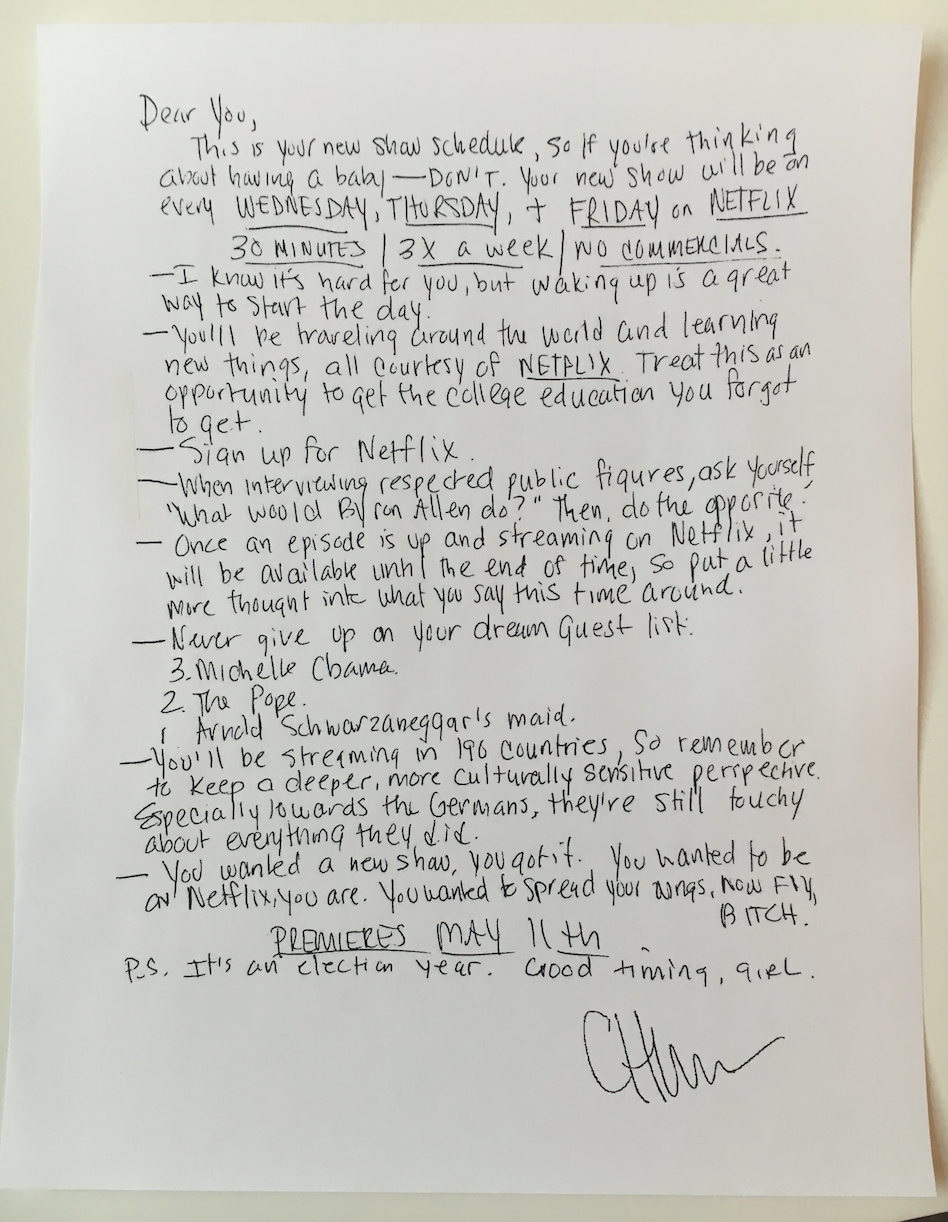 Dear You,
This is your new show schedule, so if you're thinking
about having a baby — DON'T. Your new show will be on
every WEDNESDAY, THURSDAY, + FRIDAY on NETFLIX
30 MINUTES | 3X a week | NO COMMERCIALS.
— I know it's hard for you, but waking up is a great
way to start the day.
— You'll be traveling around the world and learning
new things, all courtesy of NETFLIX. Treat this as an
opportunity to get the college education you forgot
to get.
— Sign up for Netflix.
— When interviewing respected public figures, ask yourself
"What would Byron Allen do?" Then, do the opposite.
— Once an episode is up and streaming on Netflix, it
will be available until the end of time, so put a little
more thought into what you say this time around.
— Never give up on your dream guest list:
3. Michelle Obama.
2. The Pope.
1 Arnold Schwarzaneggar's maid.
— You'll be streaming in 190 countries, so remember
to keep a deeper, more culturally sensitive perspective.
Especially towards the Germans, they're still touchy
about everything they did.
— You wanted a new show, you got it. You wanted to be
on Netflix, you are. You wanted to spread your wings, NOW FLY,
BITCH.
PREMIERES MAY 11th
P.S. It's an election year. Good timing, girl.